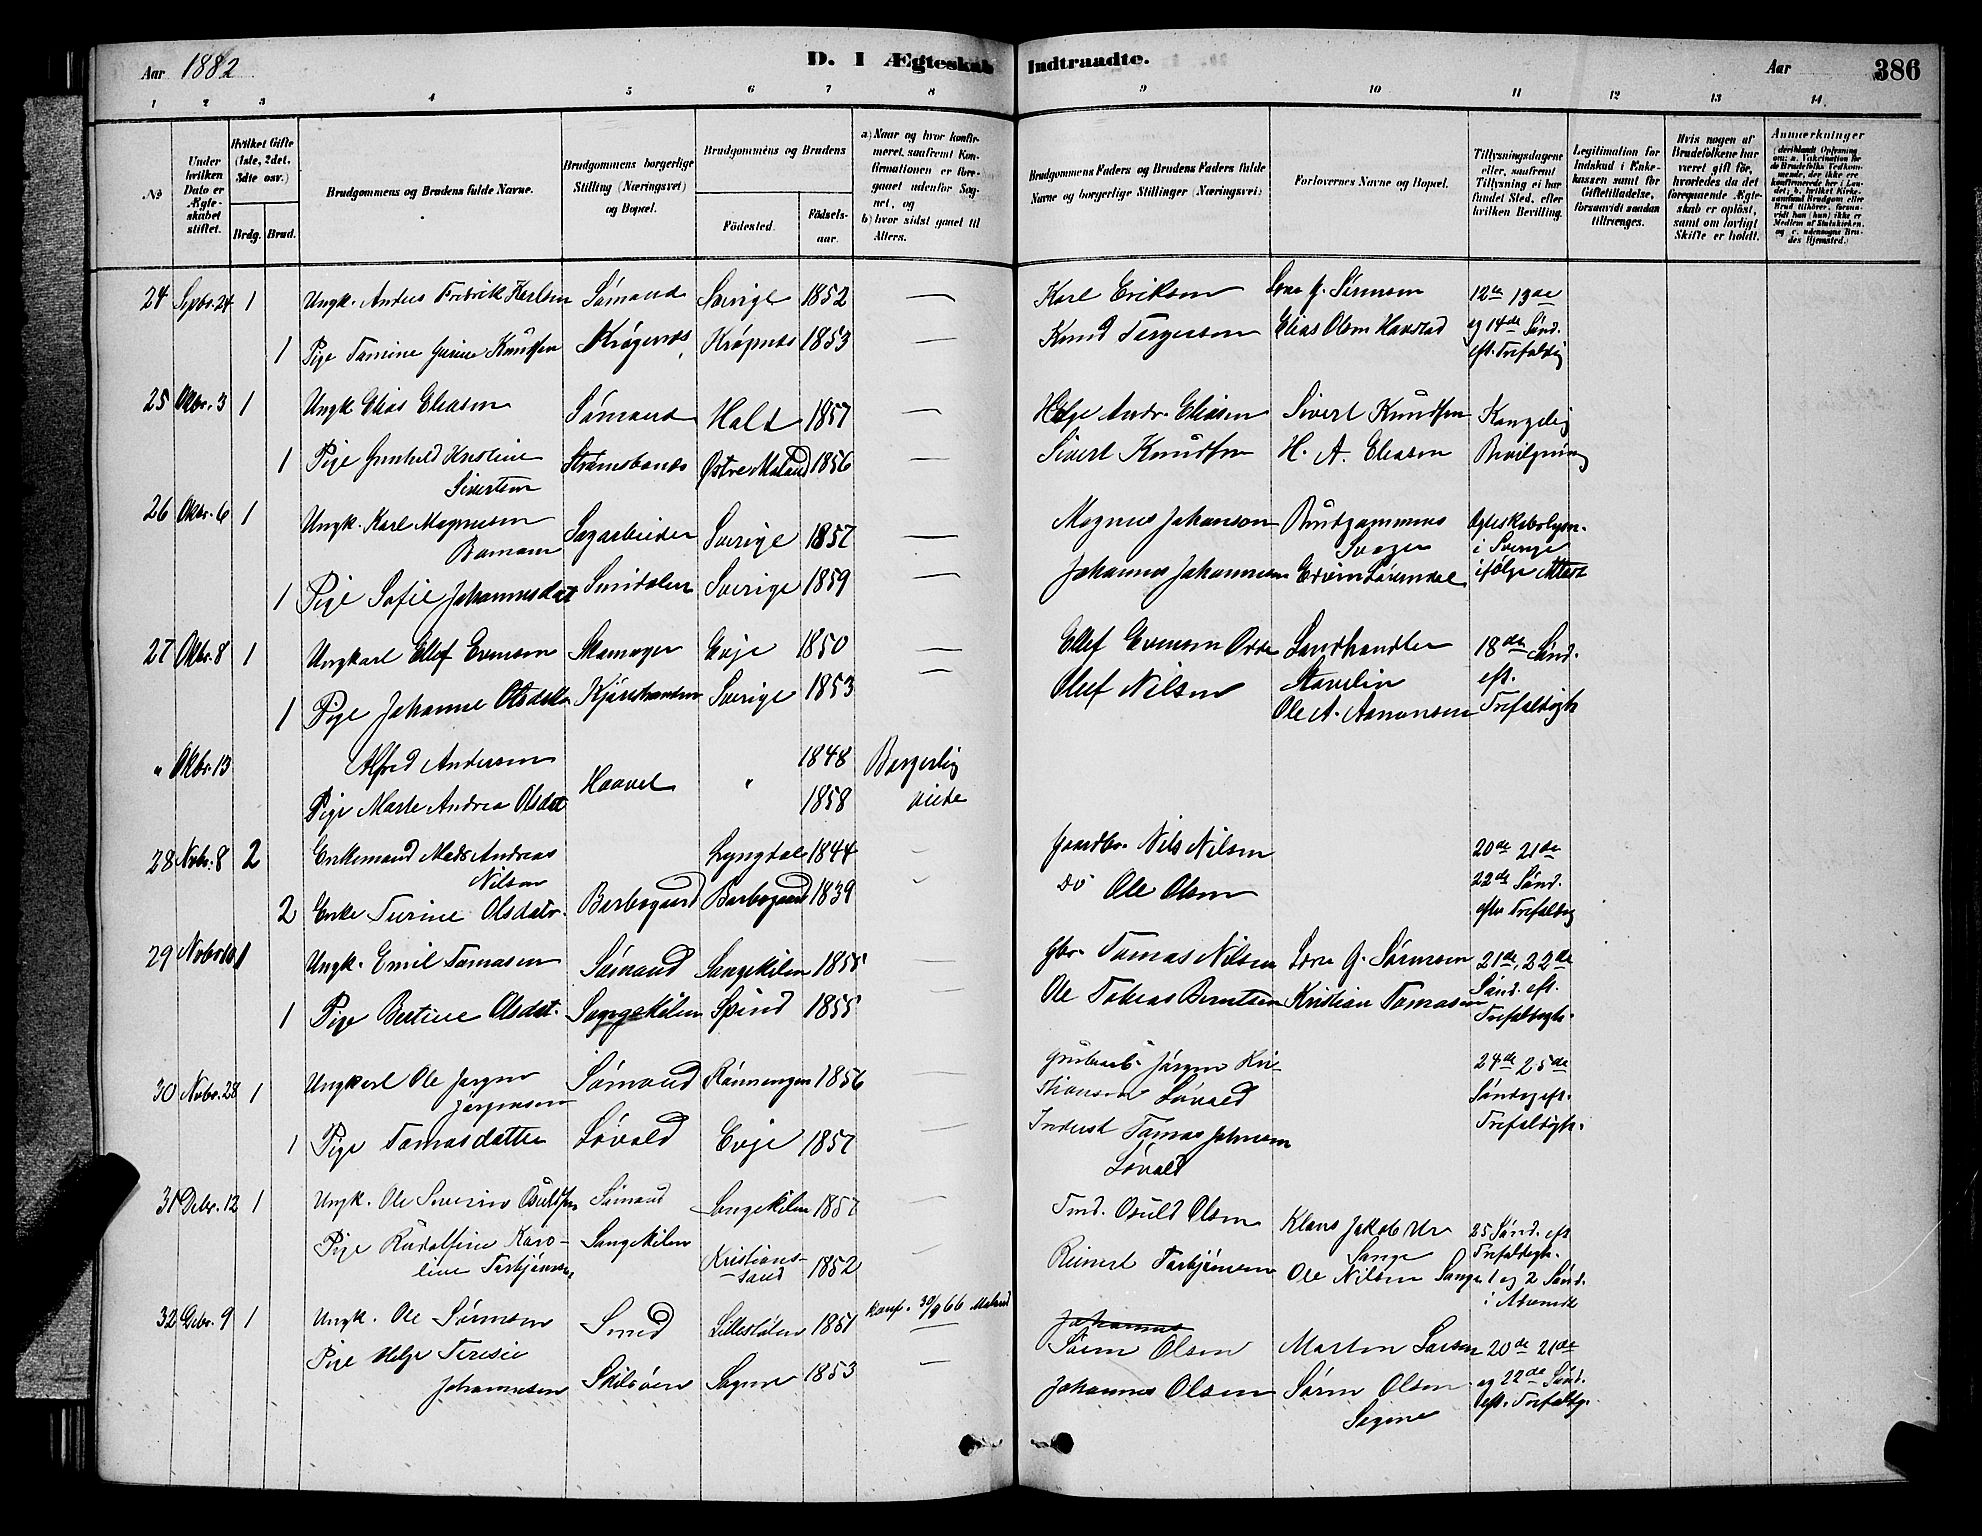 Aar 1882
D. I Ægteskab Indtraadte.
Aar
386
1 2 3 4 5 6 7 8 9 10 11 12 13 14
No
Under hvilken Dato er Ægteskabet stiftet.
Hvilket Gifte (1ste, 2det, 3die osv.)
Brdg. Brud.
Brudgommens og Brudens fulde Navne.
Brudgommens borgerlige Stilling (Næringsvei) og Bopæl.
Brudgommens og Brudens
Födested.
Födselsaar.
a) Naar og hvor konfirmeret, saafremt Konfirmationen er foregaaet udenfor Sognet, og
b) hvor sidst gaaet til Alters.
Brudgommens Faders og Brudens Faders fulde Navne og borgerlige Stillinger (Næringsvei)
Forlovernes Navne og Bopæl.
Tillysningsdagene eller, saafremt Tillysning ei har fundet Sted, efter hvilken Bevilling.
Legitimation for Indskud i Enkekassen samt for Giftetilladelse, forsaavidt saadan tiltrænges.
Hvis nogen af Brudefolkene har været gift för, hvorledes da det foregaaende Ægteskab er oplöst, samt om lovligt Skifte er holdt.
Anmærkninger
24 Sepbr. 24 1 Ungk. Anders Fredrik Karlsen Sømand Sverige 1852 — Karl Eriksen Lars G. Sørensen 12te 13de
1 Pige Tamine Gurine Knudsen Krøgenes Krøgenes 1853 — Knud Tergersen Elias Olsen Havstad og 14de Sønd.
eft. Trefoldig
25 Okbr. 3 1 Ungk Elias Eliasen Sømand Holt 1857 — Helge Andr. Eliasen Sivert Knudsen Kongelig
1 Pige Gunhild Kristine Strømsbunes Østre Moland 1856 — Sivert Knudsen H. A. Eliasen Bevilgning
Sivertsen
26 Okbr. 6 1 Ungk. Karl Magnusen Sagarbeider Sverige 1857 — Magnus Johanson Brudgommens
Svoger i Sverige
1 Pige Sofie Johannesdat Sverige 1859 — Johannes Johannesen ifølge Attest
27 Okbr. 8 1 Ungkarl Ellef Evensen Skomager Evje 1850 — Ellef Evensen Landhandler 18de Sønd.
1 Pige Johanne Olsdatter Sverige 1853 — Olef Nilsen eft.
Ole A. Aanonsen Trefoldigh
" Okbr. 13 Alfred Andersen Haavet " 1848 Borgerlig
Pige Marte Andrea Olsdat 1858 viede
28 Nvbr. 8 2 Enkemand Mads Andreas Lyngdal 1844 Gaardbr. Nils Nilsen 20de 21de
Nilsen 22de Sønd.
2 Enke Turine Olsdatr. Barbogaard Barbogaard 1839 Do Ole Olsen efter Trefoldig
29 Nvbr 10 1 Ungk. Emil Tomasen Sømand Songekilen 1855 — Gbr. Tomas Nilsen Lars G. Sørensen 21de, 22de
Sønd. eft.
1 Pige Bertine Olsdat. Songekilen Spind 1855 — Ole Tobias Berntsen Kristian Tomasen Trefoldigh.
30 Nvbr. 28 1 Ungkarl Ole Jørgen Sømand Rønningen 1856 — Grubearb. Jørgen Kri- 24de 25de
Jørgensen stiansen Løvold Søndag eft.
1 Pige Tomasdatter Løvold Evje 1857 — Inderst Tomas Johnsen Trefoldigh.
Løvold
31 Debr. 12 1 Ungk. Ole Severin Osuldsen Sømand Songekilen 1857 — Ind. Osuld Olsen Klaus Jakob 25 Sønd. eft
Pige Rudolfine Karo- Songekilen Kristians- Songe Trefoldigh.
line Torbjørnsen sand 1852 — Reinert Torbjørnsen Ole Nilsen Songe 1 og 2 Sønd.
i Advendt
32 Debr. 9 1 Ungk. Ole Sørensen Smed Lillestølen 1851 konf. 30/9 66 Moland Johannes
Søren Olsen Morten Larsen 20de 21de
Pige Helge Teresie og 22de Sønd.
Johannesen Skilsøen Sogne 1853 — Johannes Olsen Søren Olsen eft. Trefoldg.
Sogne